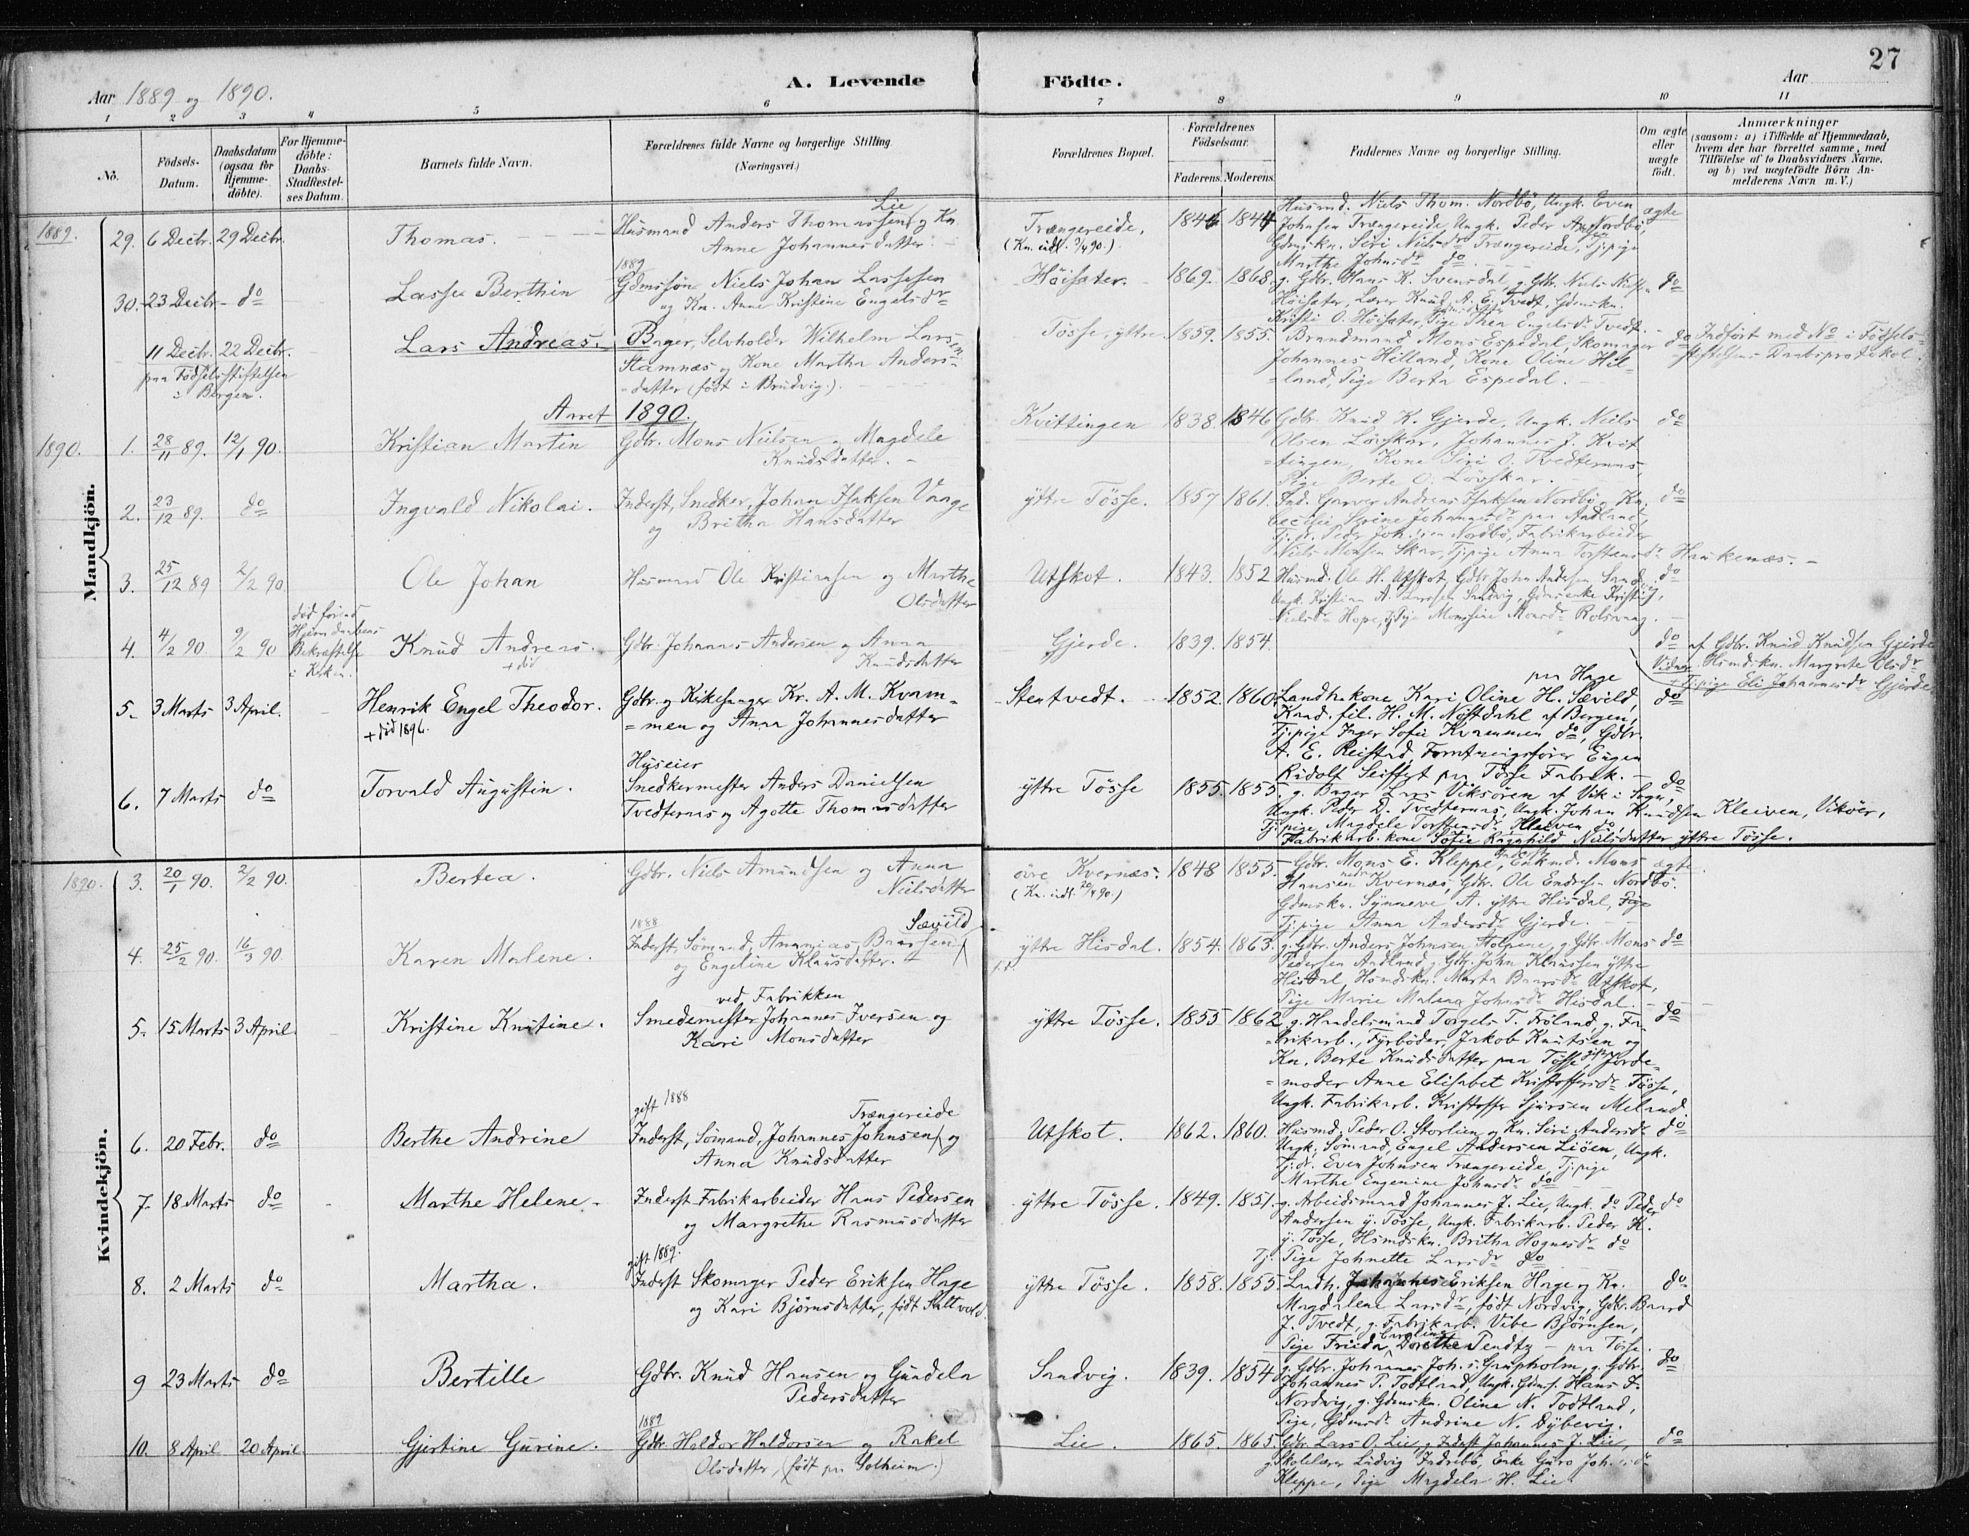 27
Aar 1889 og 1890.
A. Levende Födte.
Aar
1 2 3 4 5 6 7 8 9 10 11
No.
Födsels-Datum.
Daabsdatum (ogsaa for Hjemmedöbte).
For Hjemmedöbte: Daabs-Stadfæstelses Datum.
Barnets fulde Navn.
Forældrenes fulde Navne og borgerlige Stilling. (Næringsvei.)
Forældrenes Bopæl.
Forældrenes Födselsaar.
Faderens. Moderens.
Faddernes Navne og borgerlige Stilling.
Om ægte eller uægte födt.
Anmærkninger
(saasom: a) i Tilfælde af Hjemmedaab, hvem der har forrettet samme, med Tilföielse af to Daabsvidners Navne, og b) ved uægtefödte Börn Anmelderens Navn m. V.)
Mandkjön.
1889.
29. 6 Decbr. 29 Decbr. Thomas.
Husmand Anders Thomassen Lie og Kn.
Anne Johannesdatter
Trængereide. 1844
Husmd. Niels Thom. Nordbö, Ungk. Even
Johnsen Trængereide, Ungk. Peder A. Nordbö,
Gdmskn. Siri Nielsdr Trængereide, Tj.pige
Marthe Johnsdr do
ægte
30. 23 Decbr. do Lasse Berthin
1889
Gdmssön Niels Johan Lassesen
og Kn. Anne Kristine Engelsdr
Höisater. 1869. 1868.
g. Gdbr. Hans K. Svensdal, g. Gdbr. Niels Niels.
Höisater, Lærer Knud A. E. Tvedt, Gdmskn.
Kristi O. Höisater, Pige Thea Engelsdr Tvedt.
do
11 Decbr. 22 Decbr.
paa Födselsstiftelsen
i Bergen.
Lars Andreas.
Bager, Selvholder Wilhelm Larsen
Stamnæs og Kone Martha Anders-
datter (födt i Bruvig.)
Tösse, yttre. 1859. 1855.
Brandmand Mons Espedal, Skomager
Johannes Hilland, Kone Oline Hil-
=land, Pige Berta Espedal.
do
Indfört med No i Födsels-
stiftelsens Daabsprotokol.
Aaret 1890.
1890.
1. 28/11 89. 12/1 90. Kristian Martin
Gdbr. Mons Nielsen og Magdele
Knudsdatter.
Kvittingen 1838. 1846
Gdbr. Knud K. Gjerde, Ungk. Niels
Olsen Lövskar, Johannes J. Kvit
=tingen, Kone Siri O. Tvedternæs,
Pige Berte O. Lövskar.
do
2. 23/12 89. do Ingvald Nikolai.
Inderst, Snedker, Johan Isaksen Vaage
og Britha Hansdatter
yttre Tösse. 1857 1861.
Ind. Garver Andreas Isaksen Nordbö, Kn.
Tj.dr. Peder Joh.sen Nordbö, Fabrikarbeider
Niels Monsen Skar, Tj.pige Anna Torstensdr Haukenæs.
do
3. 25/12 89 2/2 90. Ole Johan
Husmand Ole Kristiansen og Marthe
Olsdatter
Utskot. 1843. 1852
Husmd. Ole H. Utskot, Gdbr. John Andersen Sandvig,
Ungk. Kristian A. Larssen Sandvig, Gdmsenke Kristi
Nielsdr Hope, Pige Monsine Monsdr Rolsvaag.
do
4. 4/2 90 9/2 90
död förinds
Hjemdaabens
Bekræftelse
i Kirken.
Knud Andreas.
+ död
Gdbr. Johannes Andersen og Anna
Knudsdatter
Gjerde. 1839. 1854.
do
af Gdbr. Knud Knudsen Gjerde
Vidner: Hsmdskn. Margrete Olsdr
+ Tj.pige Eli Johannesdr Gjerde
5. 3 Marts 3 April. Henrik Engel Theodor.
+ död 1896.
Gdbr. og Kirkesanger Kr. A. M. Kvam-
=men og Anna Johannesdatter
Stentvedt. 1852. 1860
paa Hage
Landh.kone Kari Oline H. Sævild,
Kand. fil. H. M. Nöstdahl af Bergen,
Tj.pige Inger Sofie Kvammen do, Gdbr.
A. E. Reistad, Forretningsförer Eugen
Rudolf Seiffyt paa Tösse Fabrik.
do
6. 7 Marts do Torvald Augustin.
Huseier
Snedkermester Anders Danielsen
Tvedternæs og Agotte Thomasdatter
yttre Tösse 1855. 1855.
g. Bager Lars Viksören af Vik i Sogn,
Ungk. Peder D. Tvedternæs, Ungk. Johan Knudsen Kleiven, Viköer,
Tj.pige Magdele Torstensdr Kleiven do,
Fabrikarb. kone Sofie Ragnhild Nielsdatter yttre Tösse.
do
Kvindekjön.
1890.
3. 20/1 90. 2/2 90. Bertea.
Gdbr. Niels Amundsen og Anna
Nielsdatter
övre Kvernæs. 1848 1855.
Gdbr. Mons E. Kleppe, Enkmd. Mons
Hansen nedr. Kvernæs, Gdbr. Ole Endresen Nordbö.
Gdmskn. Synneve A. yttre Hisdal,
Tj.pige Anna Andersdr Gjerde.
ægte.
4. 25/2 90. 16/3 90. Karen Malene.
1888 Sævild
Inderst, Sömand, Ananias Baarsen
og Engeline Klausdatter.
yttre Hisdal. 1854. 1863.
g. Gdbr. Anders Johnsen Stolpene, g. Gdbr. Mons
Pedersen Audland, g. Gdbr. John Klausen yttre
Hisdal, Hsmdskn. Marta Baarsdr Utskot,
Pige Marie Malena Johnsdr Hisdal.
do
5. 15 Marts 3 April. Kristine Knutine.
ved Fabrikken
Smedemester Johannes Iversen og
Kari Monsdatter
yttre Tösse. 1855. 1862
g. Handelsmand Torgels T. Fröland, g. Fa-
=brikarb., Fyrböder, Jakob Knutsen og
Kn. Berte Knudsdatter paa Tösse, Jorde-
=moder Anne Elisabet Kristoffersdr Tösse,
Ungk. Fabrikarb. Kristoffer Sjursen Meland.
do
6. 20 Febr. do Berthe Andrine
gift 1888 Trængereide
Inderst, Sömand, Johannes Johnsen og
Anna Knudsdatter
Utskot. 1862. 1860.
Husmd. Peder O. Storlien og Kn. Siri Andersdr
Ungk. Sömand, Engel Andersen Liöen, Ungk.
Tj.dr. Even Johnsen Trængereide, Tj.pige
Marthe Engenine Johnsdr do
do
7. 18 Marts do Marthe Helene.
Inderst Fabrikarbeider Hans Pedersen
og Margrethe Rasmusdatter
yttre Tösse. 1849. 1851.
g. Arbeidsmand Johannes J. Lie, Ungk. do Peder
Andersen y. Tösse, Ungk. Fabrikarb. Peder K.
y. Tösse, Hsmdskn. Britha Hognesdr do
Tj. Pige Johnette Larsdr do
do
8. 2 Marts do Martha.
gift 1889.
Inderst Skomager Peder Eriksen Hage
og Kari Björnsdatter, födt
yttre Tösse. 1858. 1855
Landh. Johannes Eriksen Hage og Kn.
Magdalene Larsdr, födt Nordvig, Gdbr. Baard
J. Tvedt, g. Fabrikarb. Vibe Björnsen,
Pige Frieda Carolina Dorethea Tendtz - paa Tösse.
do
9 23 Marts do Bertille
Gdbr. Knud Hansen og Gundela
Pedersdatter
Sandvig. 1839. 1854
g. Gdbr. Johannes Joh.s. Grupholm, g. Gdbr.
Johannes P. Todtland, Ungk. Gdms. Hans J.
Nordvig, g. Gdmskn. Oline N. Todtland,
Pige, Gdmsdr Andrine N. Dybevig.
do
10. 8 April 20 April Gjertine Gurine.
1889
Gdbr Haldor Haldorsen og Rakel
Olsdatter, (födt paa Solheim.)
Lie. 1865. 1865.
Gdbr Lars O. Lie, g. Inderst Johannes J. Lie,
g. Skolelærer Ludvig Indrebö, Enke Guro Joh.
Kleppe, Pige Magdela H. Lie.
do